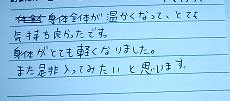 身体全体が温かくなって、とても
気持ち良かったです。
身体がとても軽くなりました。
また是非入ってみたいと思います。